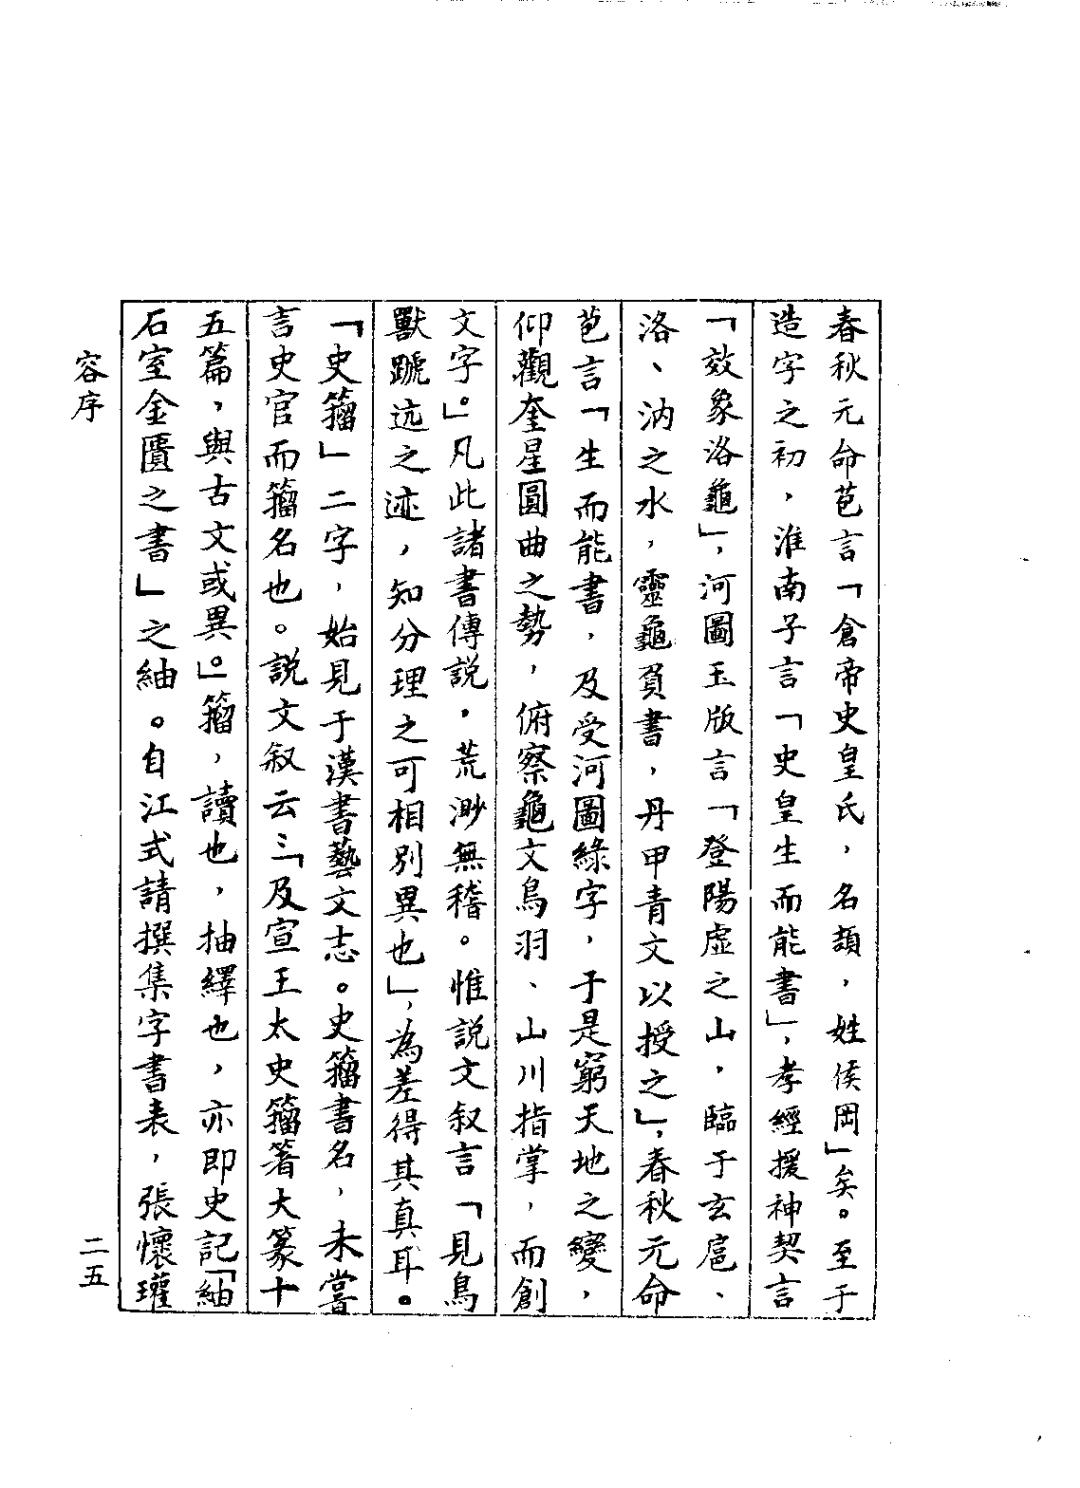 春秋元命苞言「倉帝史皇氏，名頡，姓侯岡」矣。至于
造字之初，淮南子言「史皇生而能書」，孝經援神契言
「效象洛龜」，河圖玉版言「登陽虛之山，臨于玄扈、
洛、汭之水，靈龜負書，丹甲青文以授之」，春秋元命
苞言「生而能書，及受河圖綠字，于是窮天地之變，
仰觀奎星圓曲之勢，俯察龜文鳥羽、山川指掌，而創
文字。」凡此諸書傳説，荒渺無稽。惟説文叙言「見鳥
獸蹏迒之迹，知分理之可相別異也」，為差得其真耳。
「史籀」二字，始見于漢書藝文志。史籀書名，未嘗
言史官而籀名也。説文叙云：「及宣王太史籀箸大篆十
五篇，與古文或異。」籀，讀也，抽繹也，亦即史記「紬
石室金匱之書」之紬。自江式請撰集字書表，張懷瓘
容序
二五